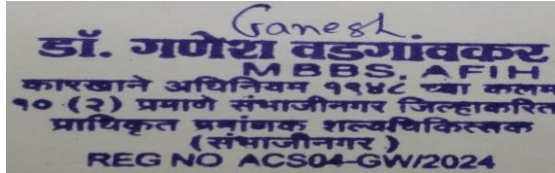 Ganesh
डॉ. गणेश वडगांवकर
MBBS, AFIH
कारखाने अधिनियम १९४८ च्या कलम
१० (२) प्रमाणे संभाजीनगर जिल्हाकरित
प्राधिकृत प्रमांणक शल्यचिकित्सक
(संभाजीनगर)
REG NO ACS04-GW/2024